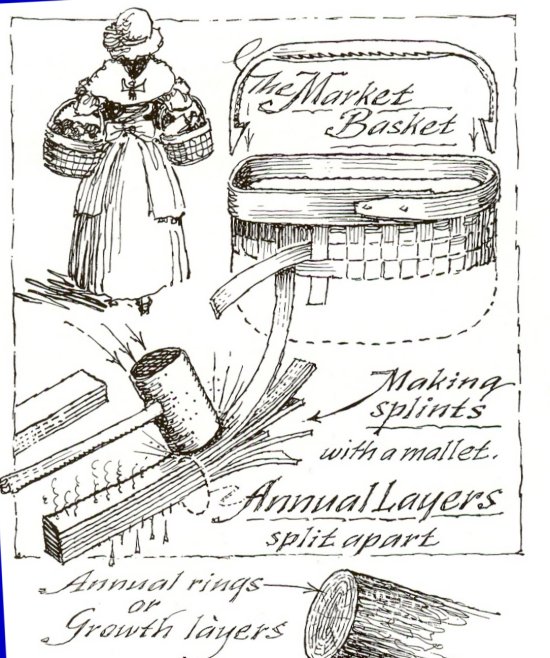 The Market
Basket
Making
splints
with a mallet.
Annual Layers
split apart
Annual rings
or
Growth layers